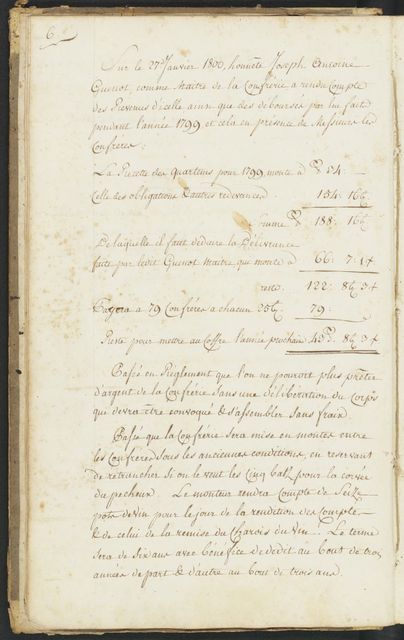 6
Sur le 27 Janvier 1800, honnête Joseph Antoine
Guenot, comme Maitre de la Confrérie a rendu Compte
des Revenus d'icelle ainsi que des déboursés par lui faits
pendant l'année 1799 et cela en présence de Messieurs les
Confréres:
La Recette des quartens pour 1799 monte à 54: —
Celle des obligations & autres redevances 134: 16
Somme 188: 16
De laquelle il faut déduire la Délivrance
faite par ledit Guenot Maitre que monte à 66: 7: 1
reste 122: 8 3
Payera à 79 Confréres à chacun 25 79:
Reste pour mettre au Coffre l'année prochaine 43 8 3
Passé en Réglement que l'on ne pouroit plus prêter
d'argent de la Confrérie sans une délibération du Corps
qui devra être convoqué & s'assembler sans fraix
Passée que la Confrérie sera mise en montes entre
les Confréres sous les anciennes conditions, en reservant
de retrancher si on le veut les Cinq pour la corvée
du pecheux. Le monteur rendra Compte de Seize
pots de vin pour le jour de la rendition des Comptes
& de celui de la remise du Charois du vin. Le terme
sera de six ans avec bénéfice de dédit au bout de trois
années de part & d'autre au bout de trois ans.